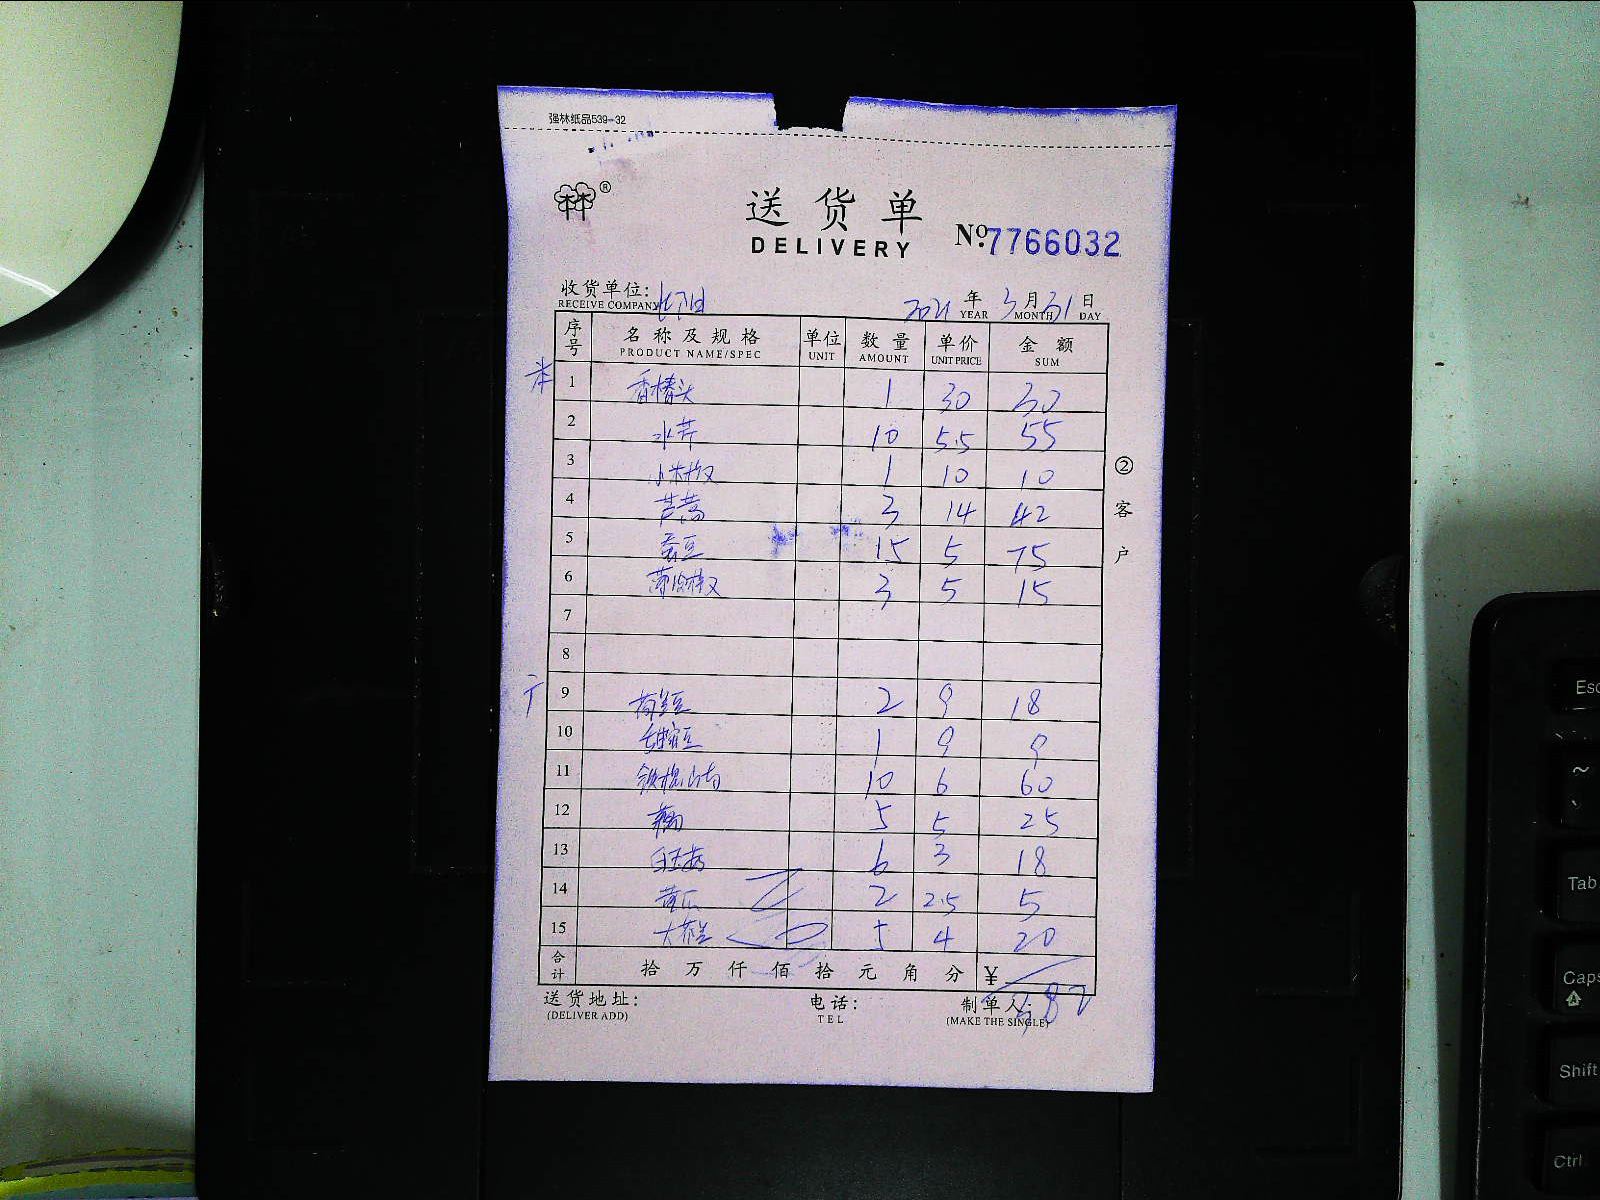 强林纸品539-32
林®
送货单
DELIVERY
Nº.7766032
收货单位:
RECEIVE COMPANY
2021年3月31日
YEAR MONTH DAY
序号 名称及规格 单位 数量 单价 金额
PRODUCT NAME/SPEC UNIT AMOUNT UNIT PRICE SUM
1 香椿头 1 30 30
2 水芹 10 5.5 55
3 1 10 10
4 芦蒿 3 14 42
5 蚕豆 15 5 75
6 3 5 15
7
8
9 荷兰豆 2 9 18
10 1 9 9
11 铁棍山药 10 6 60
12 藕 5 5 25
13 6 3 18
14 黄瓜 2 2.5 5
15 5 4 20
合计 拾万仟佰拾元角分 ¥
送货地址: 电话: 制单人:
(DELIVER ADD) TEL (MAKE THE SINGLE)
②客户
Esc
~
、
Tab
Caps
Shift
Ctrl